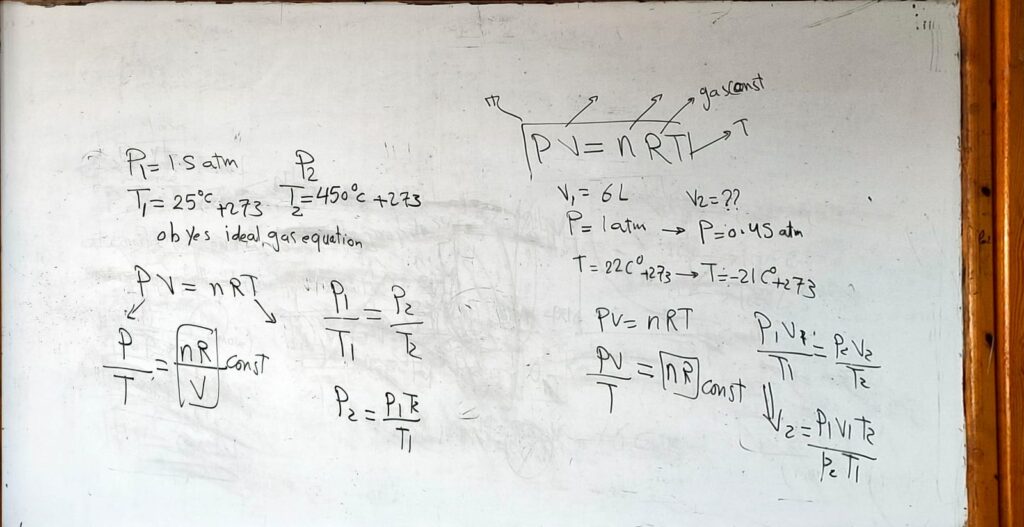 P₁ = 1.5 atm P₂
T₁ = 25°C +273 T₂ = 450°C +273
obYes ideal gas equation
PV = nRT
P/T = nR/V const
P₁/T₁ = P₂/T₂
P₂ = P₁T₂/T₁
gas const
PV = nRT
T
V₁ = 6L V₂ = ??
P = 1atm → P = 0.45 atm
T = 22C° +273 → T = -21C° +273
PV = nRT
PV/T = nR const
P₁V₁/T₁ = P₂V₂/T₂
V₂ = P₁V₁T₂/P₂T₁